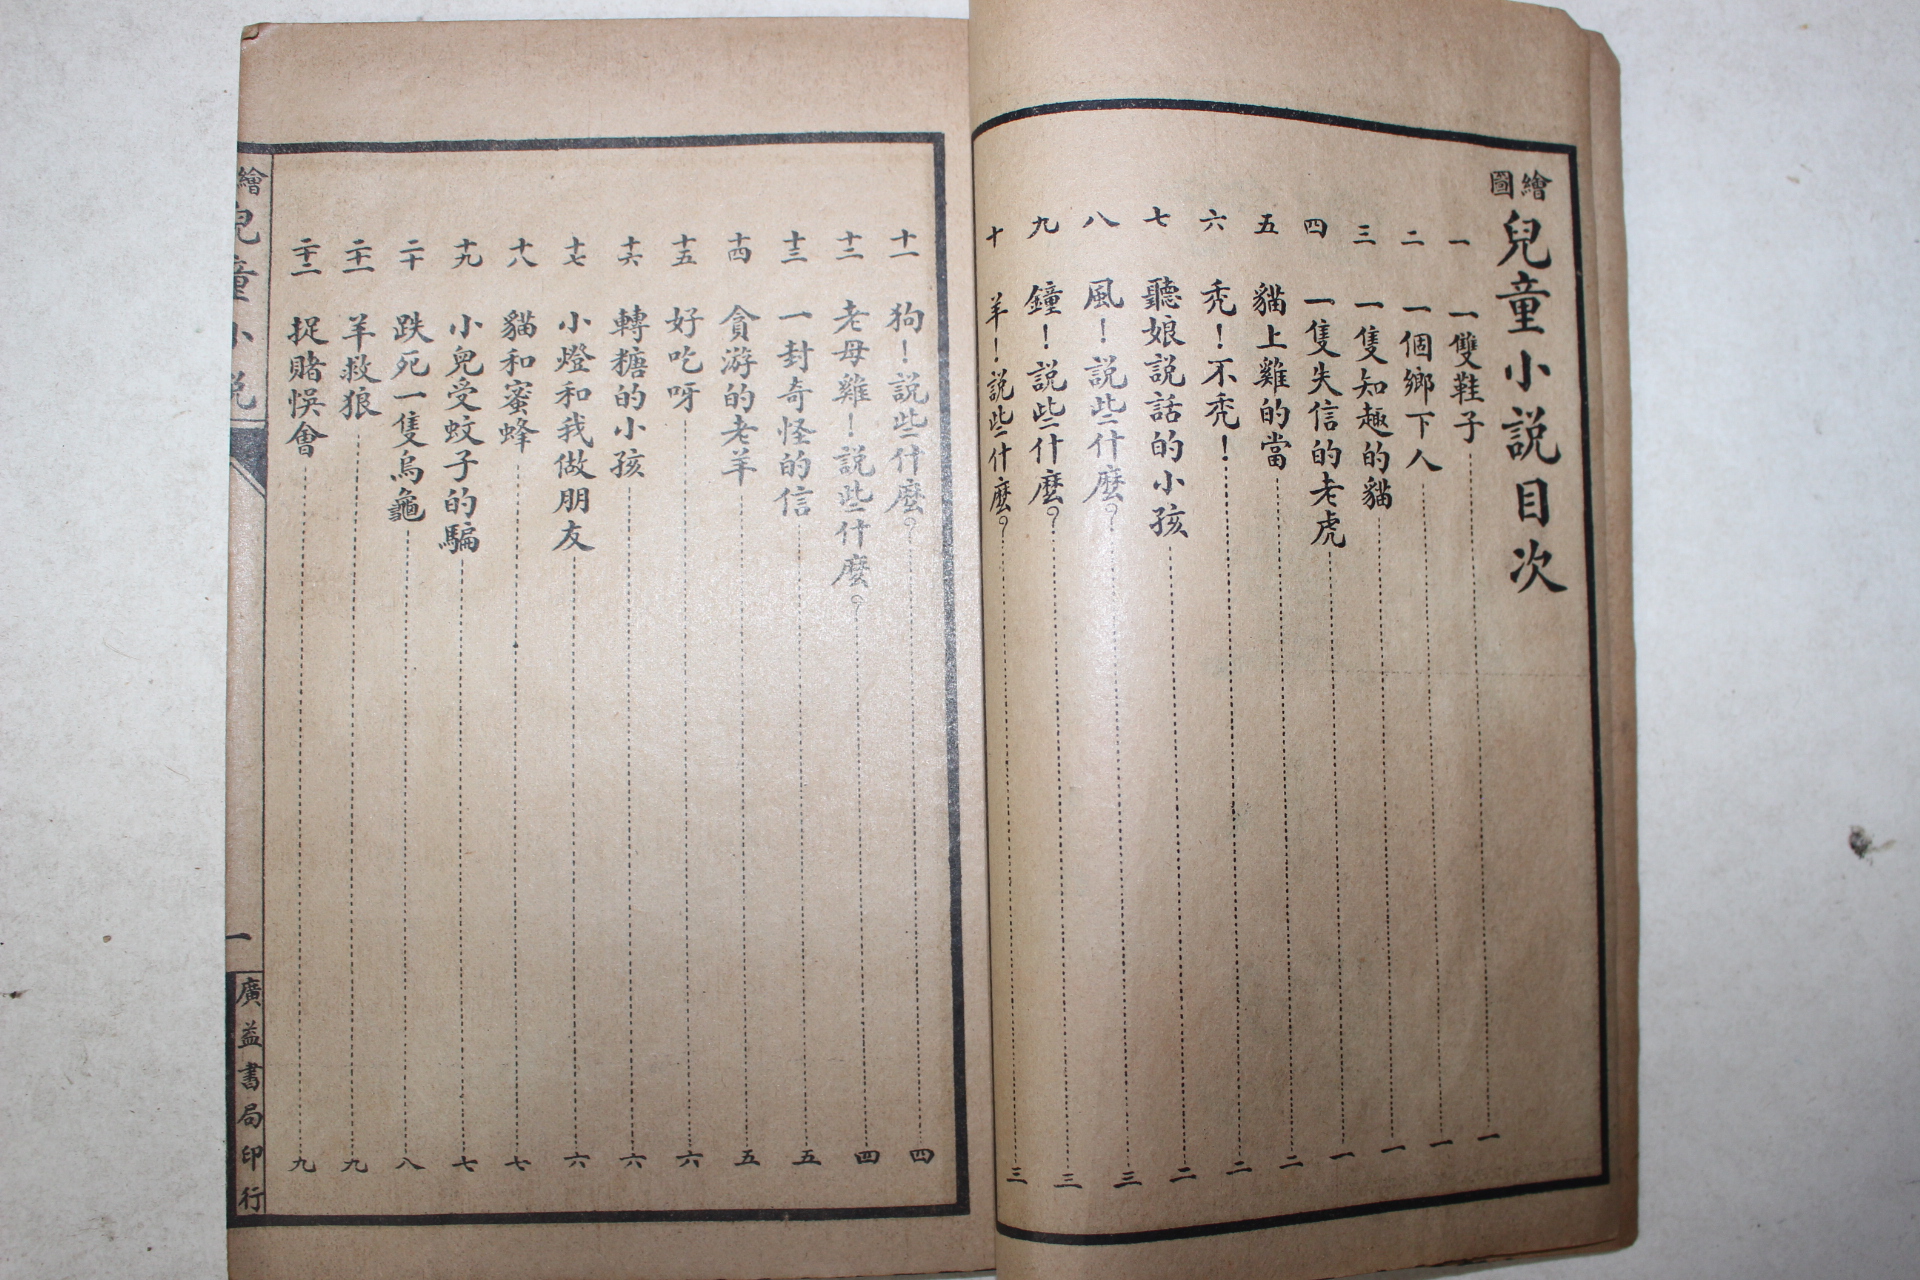 繪圖兒童小説目次
一 一雙鞋子 一
二 一個鄉下人 一
三 一隻知趣的貓 一
四 一隻失信的老虎 一
五 貓上雞的當 二
六 禿！不禿！ 二
七 聽娘説話的小孩 二
八 風！説些什麼？ 三
九 鐘！説些什麼？ 三
十 羊！説些什麼？ 三
十一 狗！説些什麼？ 四
十二 老母雞！説些什麼？ 四
十三 一封奇怪的信 五
十四 貪游的老羊 五
十五 好吃呀 六
十六 轉糖的小孩 六
十七 小燈和我做朋友 六
十八 貓和蜜蜂 七
十九 小兒受蚊子的騙 七
二十 跌死一隻烏龜 八
二十一 羊救狼 九
二十二 捉賭悞會 九
繪 兒童小説 一 廣益書局印行